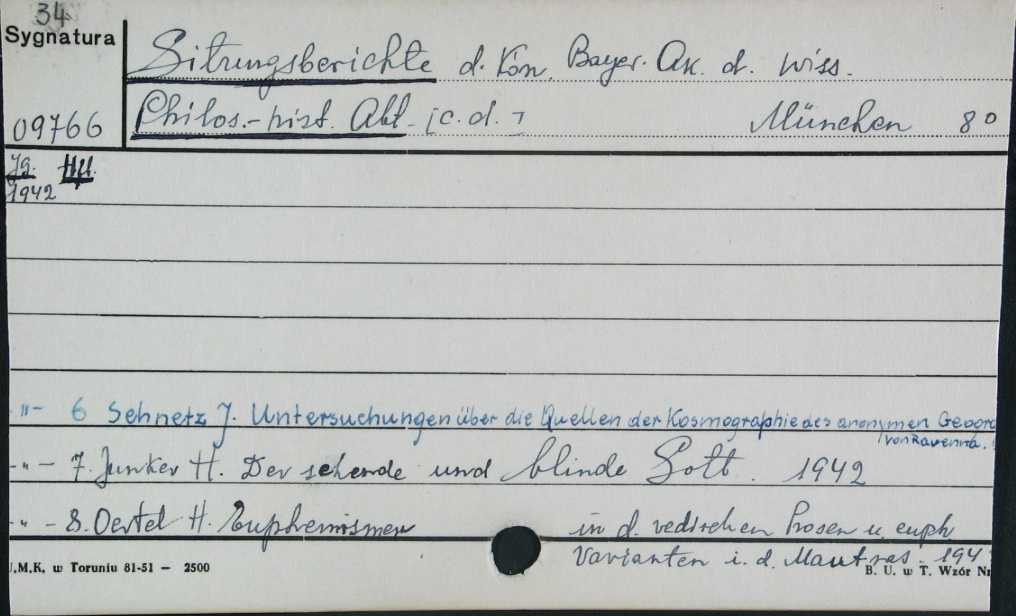 34
Sygnatura
Sitzungsberichte d. Kön. Bayer. Ak. d. Wiss.
09766
Philos.-hist. Abt. [c.d.] München 8°
Jg. H.
1942
-"- 6 Schnetz J. Untersuchungen über die Quellen der Kosmographie des anonymen Geogra
von Ravenna.
-"- 7. Junker H. Der sehende und blinde Gott. 1942
-"- 8. Oertel H. Euphemismen in d. vedischen Prosa u. euph
Varianten i. d. Mantras. 194
U.M.K. w Toruniu 81-51 - 2500
B. U. w T. Wzór Nr